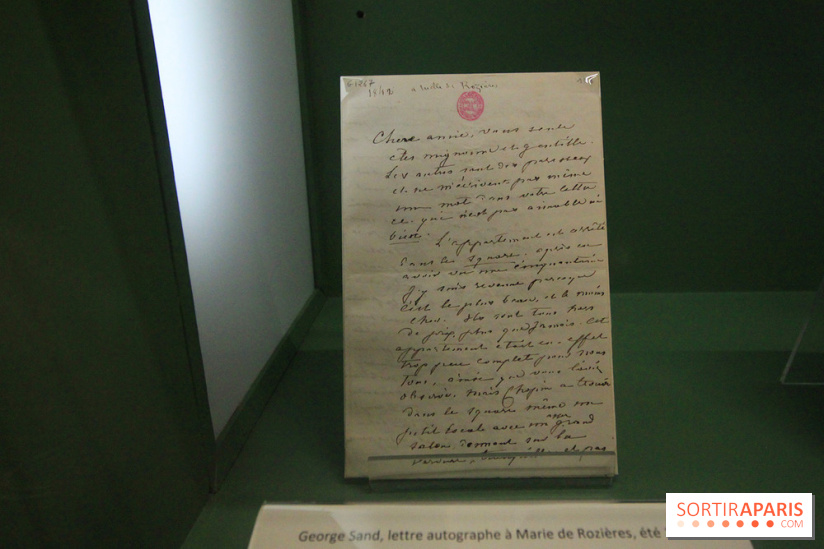 1842 a Melle de Rozières
Chère amie, vous seule
êtes mignonne et gentille.
Les autres sont des paresseux
et ne m'écrivent pas même
un mot dans votre lettre
ce qui n'est pas aimable
L'appartement est arrêté
dans les square, après en
avoir vu une cinquantaine
j'y suis revenue parceque
c'est le plus beau, et le moins
cher. Ils sont tous hors
de prix, plus que jamais. Cet
appartement était en effet
trop peu complet pour nous
tous, ainsi que vous l'aviez
observé, mais Chopin a trouvé
dans le square même un
petit local avec un assez grand
salon, donnant sur la
George Sand, lettre autographe à Marie de Rozières, été
SORTIRAPARIS
.COM